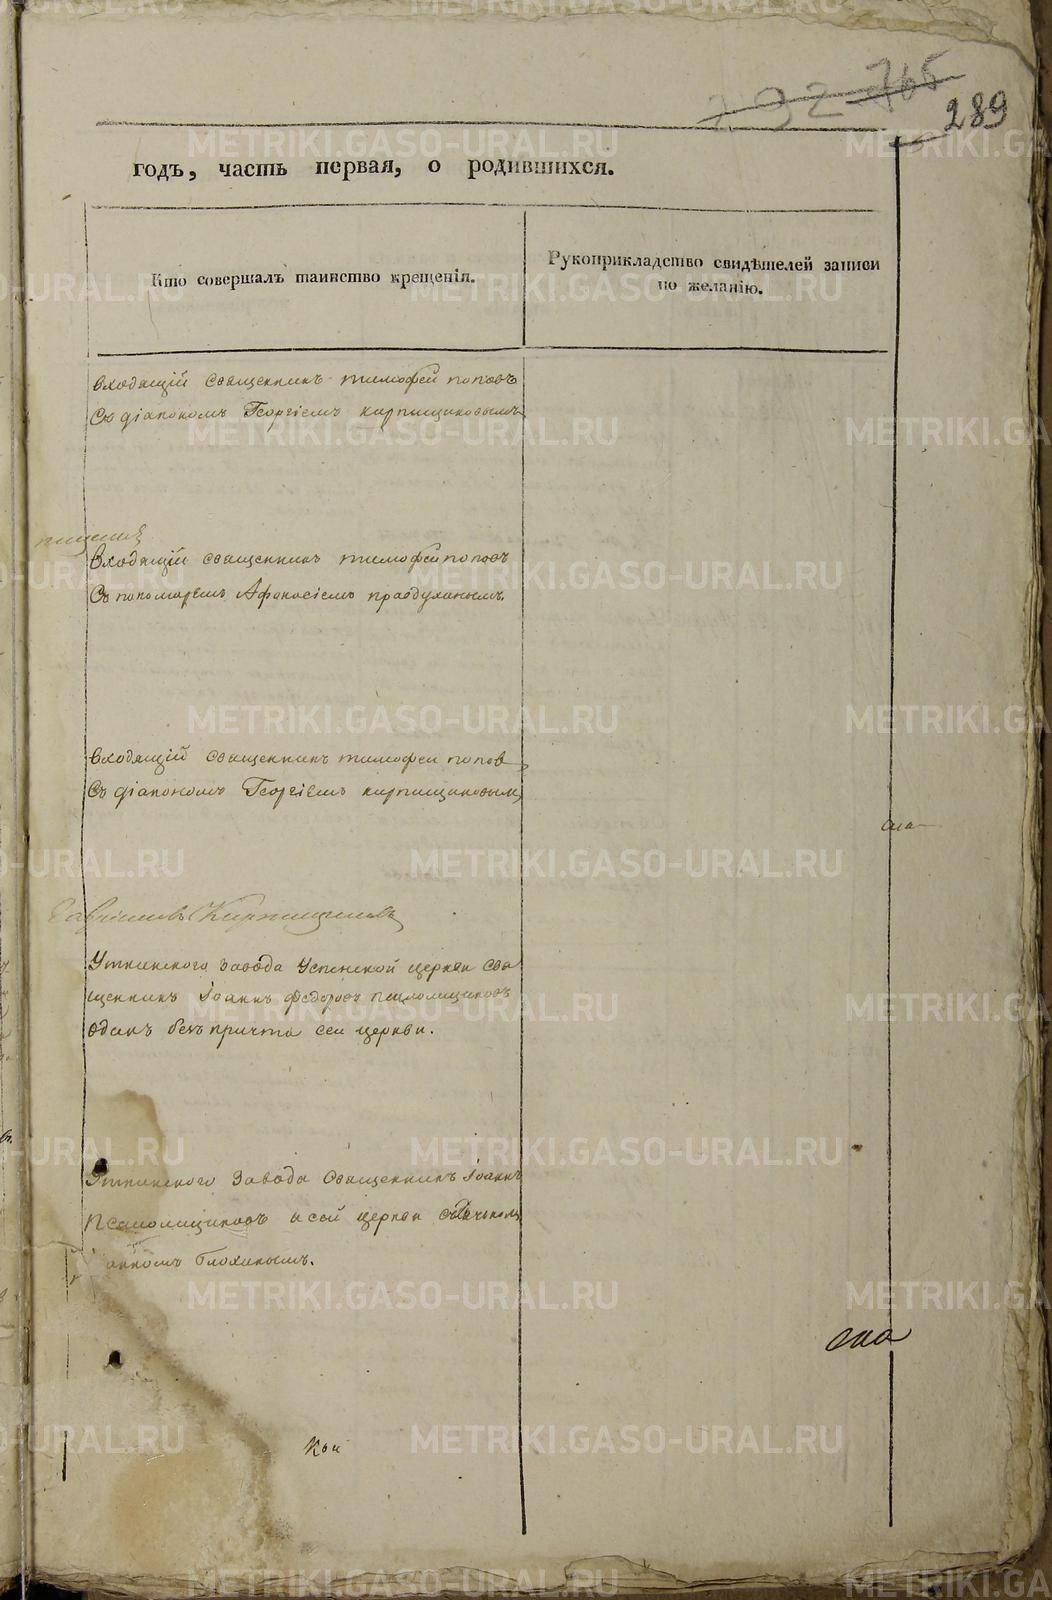 765
289
годъ, часть первая, о родившихся.
Кто совершалъ таинство крещенія.
Рукоприкладство свидѣтелей записи
по желанію.
входящій священникъ тимофей поповъ
съ діакономъ Георгіемъ кирпищиковымъ
входящій священникъ тимофей поповъ
Съ пономаремъ Афанасіемъ правдухинымъ.
входящій священникъ тимофеи попов
Съ діакономъ Георгіемъ кирпищиковым
Уткинского завода Успенской церкви свя
щенникъ Іоаннъ федоровъ псаломщиковъ
одинъ безъ причта сеи церкви.
Уткинского завода священникъ Іоаннъ
псаломщиковъ и сей церкви
Блохинымъ.
Кои
METRIKI.GASO-URAL.RU